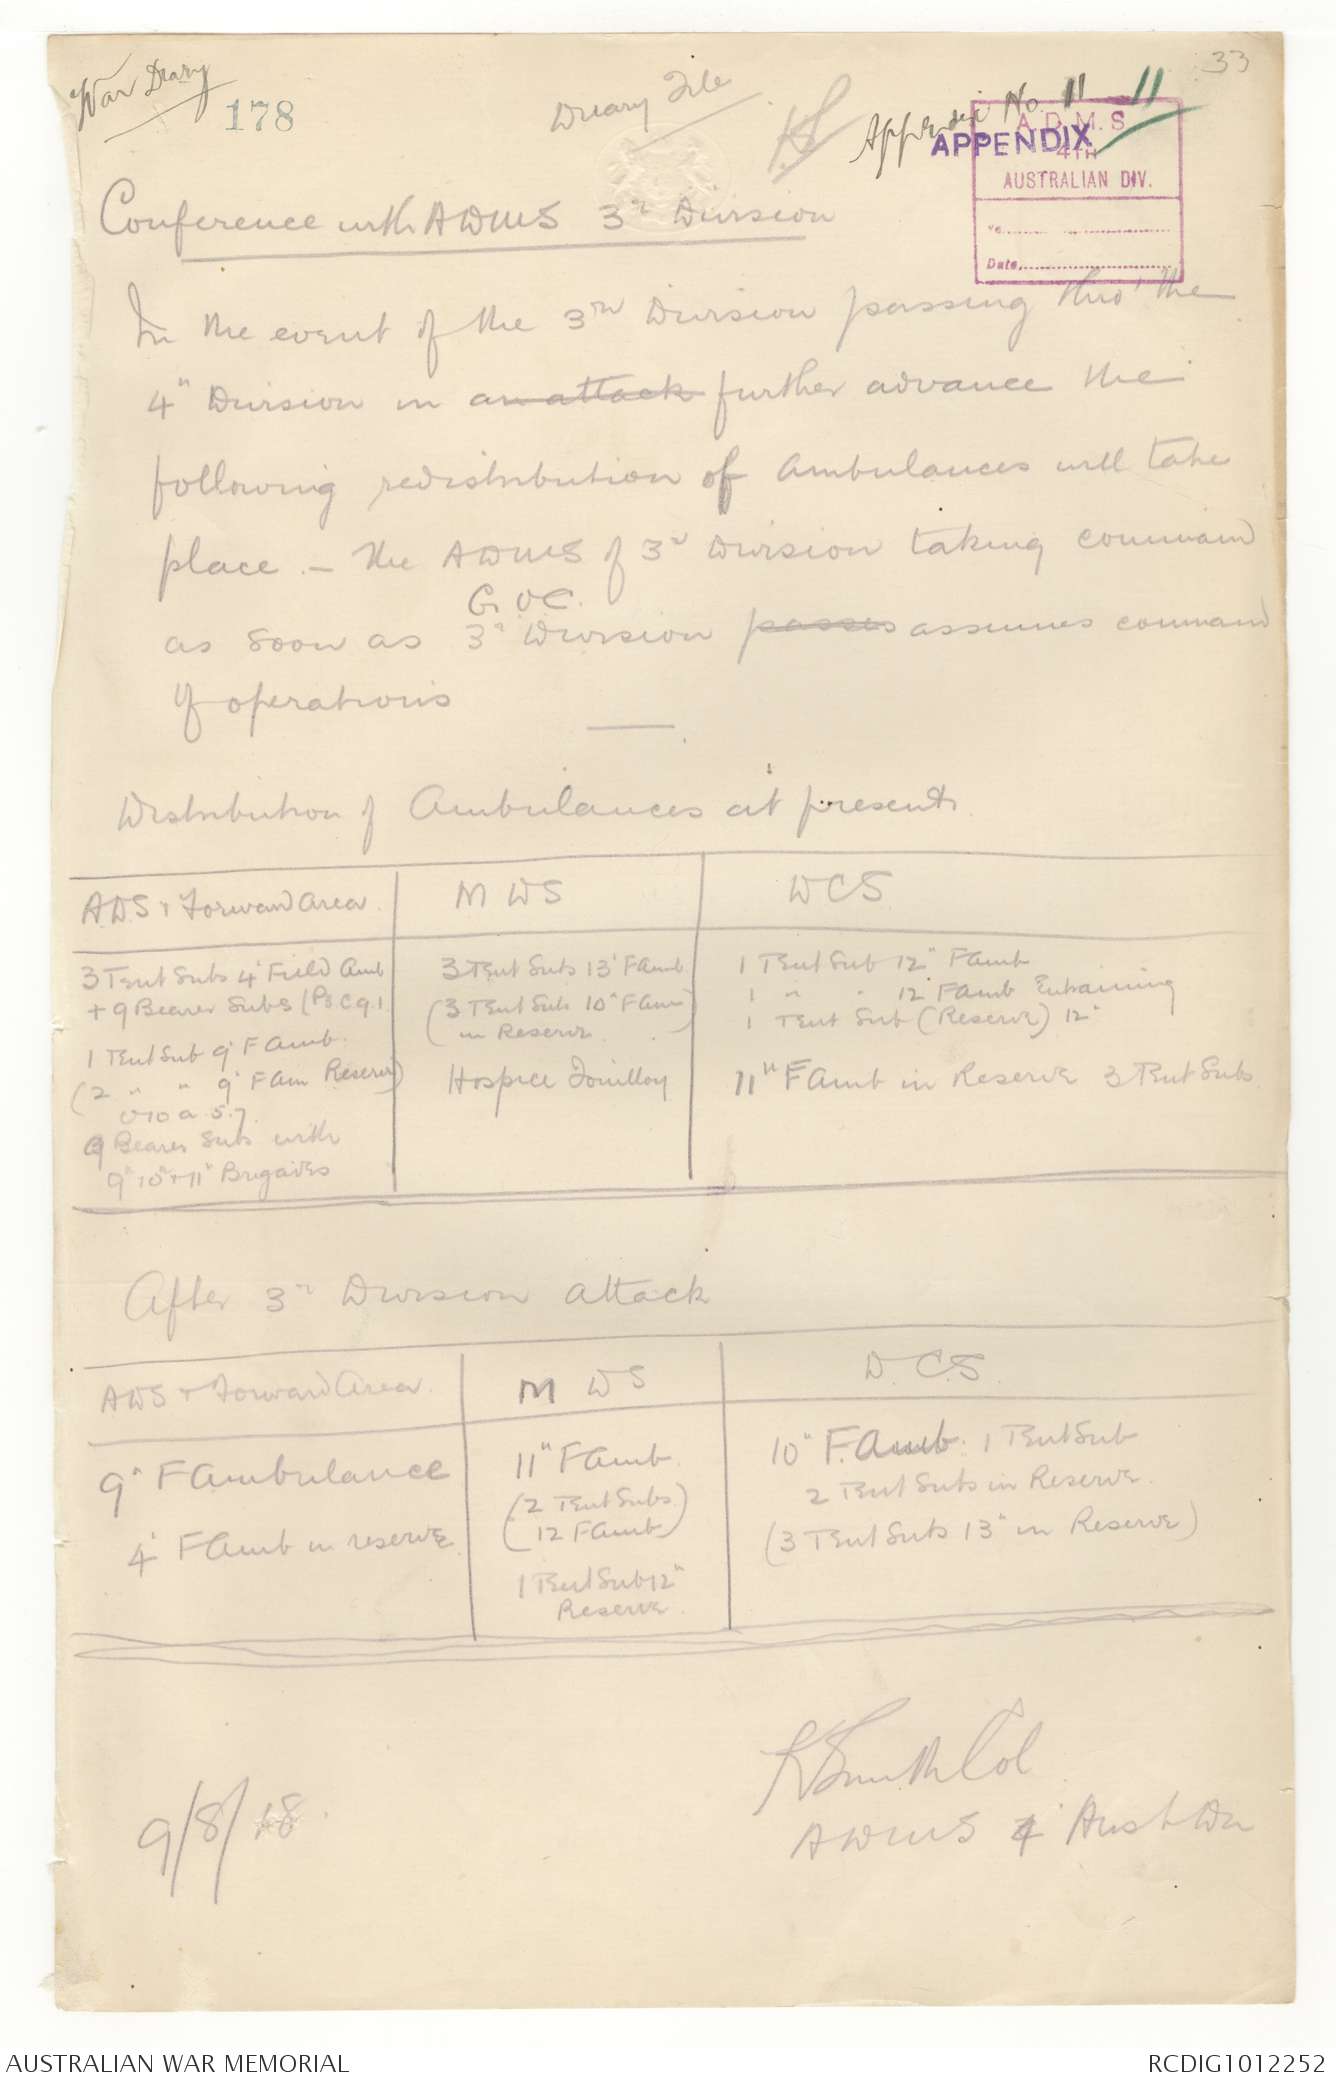 War Diary
178
Diary File
KS
Appendix No. 11 11
33
APPENDIX
A. D. M. S
4TH
AUSTRALIAN DIV.
Date
Conference with ADMS 3rd Division
In the event of the 3rd Division passing thro' the
4" Division in an attack further advance the
following redistribution of Ambulances will take
place. — The ADMS of 3rd Division taking command
G.O.C.
as soon as 3rd Division passes assumes command
of operations
Distribution of Ambulances at present
ADS + Forward Area MDS DCS
3 Tent Subs 4" Field Amb
+ 9 Bearer Subs (P3 C 9.1
1 Tent Sub 9" F Amb.
(2 " " 9" F Am Reserve)
O 10 a 5.7.
9 Bearer Subs with
9" 10" + 11" Brigades
3 Tent Subs 13" F Amb
(3 Tent Subs 10" F Am)
in Reserve
Hospice Fouilloy
1 Tent Sub 12" F Amb
1 " " 12" F Amb Entraining
1 Tent Sub (Reserve) 12"
11" F Amb in Reserve 3 Tent Subs
After 3rd Division attack
ADS + Forward Area M DS D.C.S.
9" F Ambulance
4" F Amb in reserve
11" F Amb
(2 Tent Subs)
(12 F Amb)
1 Tent Sub 12"
Reserve
10" F. Amb. 1 Tent Sub
2 Tent Subs in Reserve.
(3 Tent Subs 13" in Reserve)
K Smith Col
9/8/18.
ADMS 4 Aust Div
AUSTRALIAN WAR MEMORIAL
RCDIG1012252